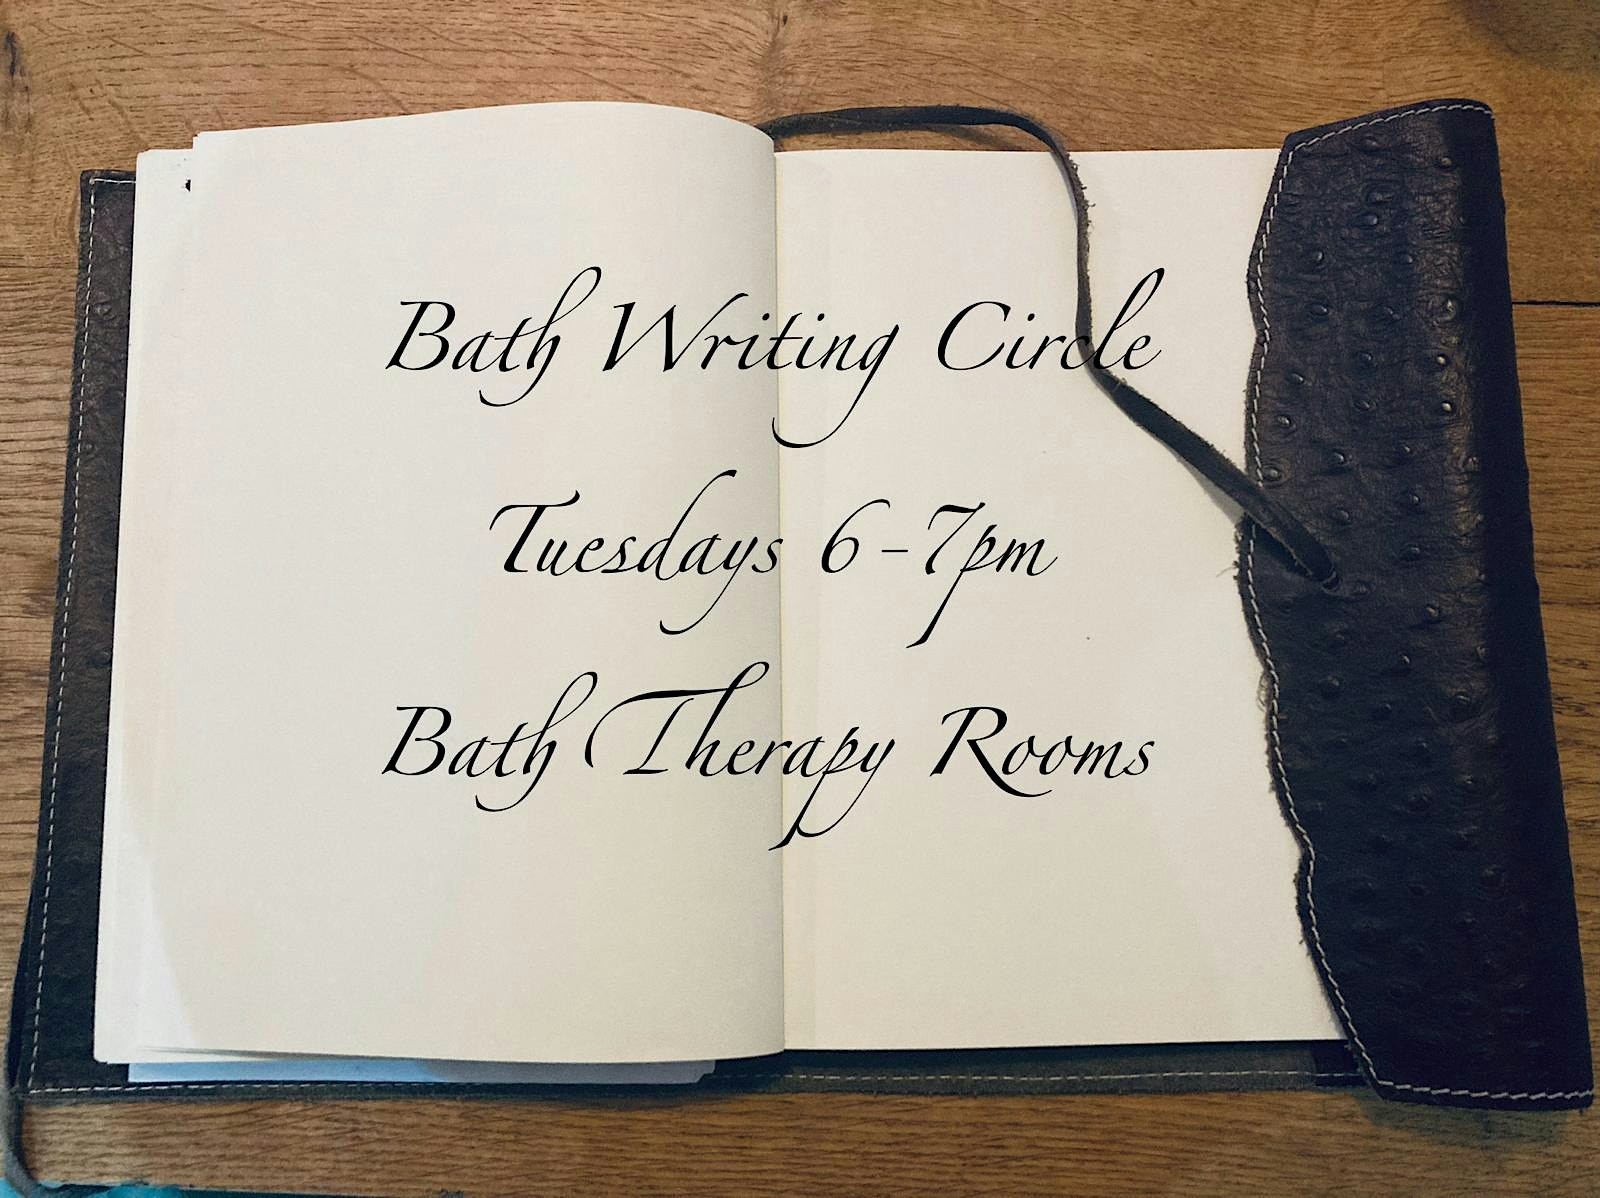 Bath Writing Circle
Tuesdays 6-7pm
Bath Therapy Rooms